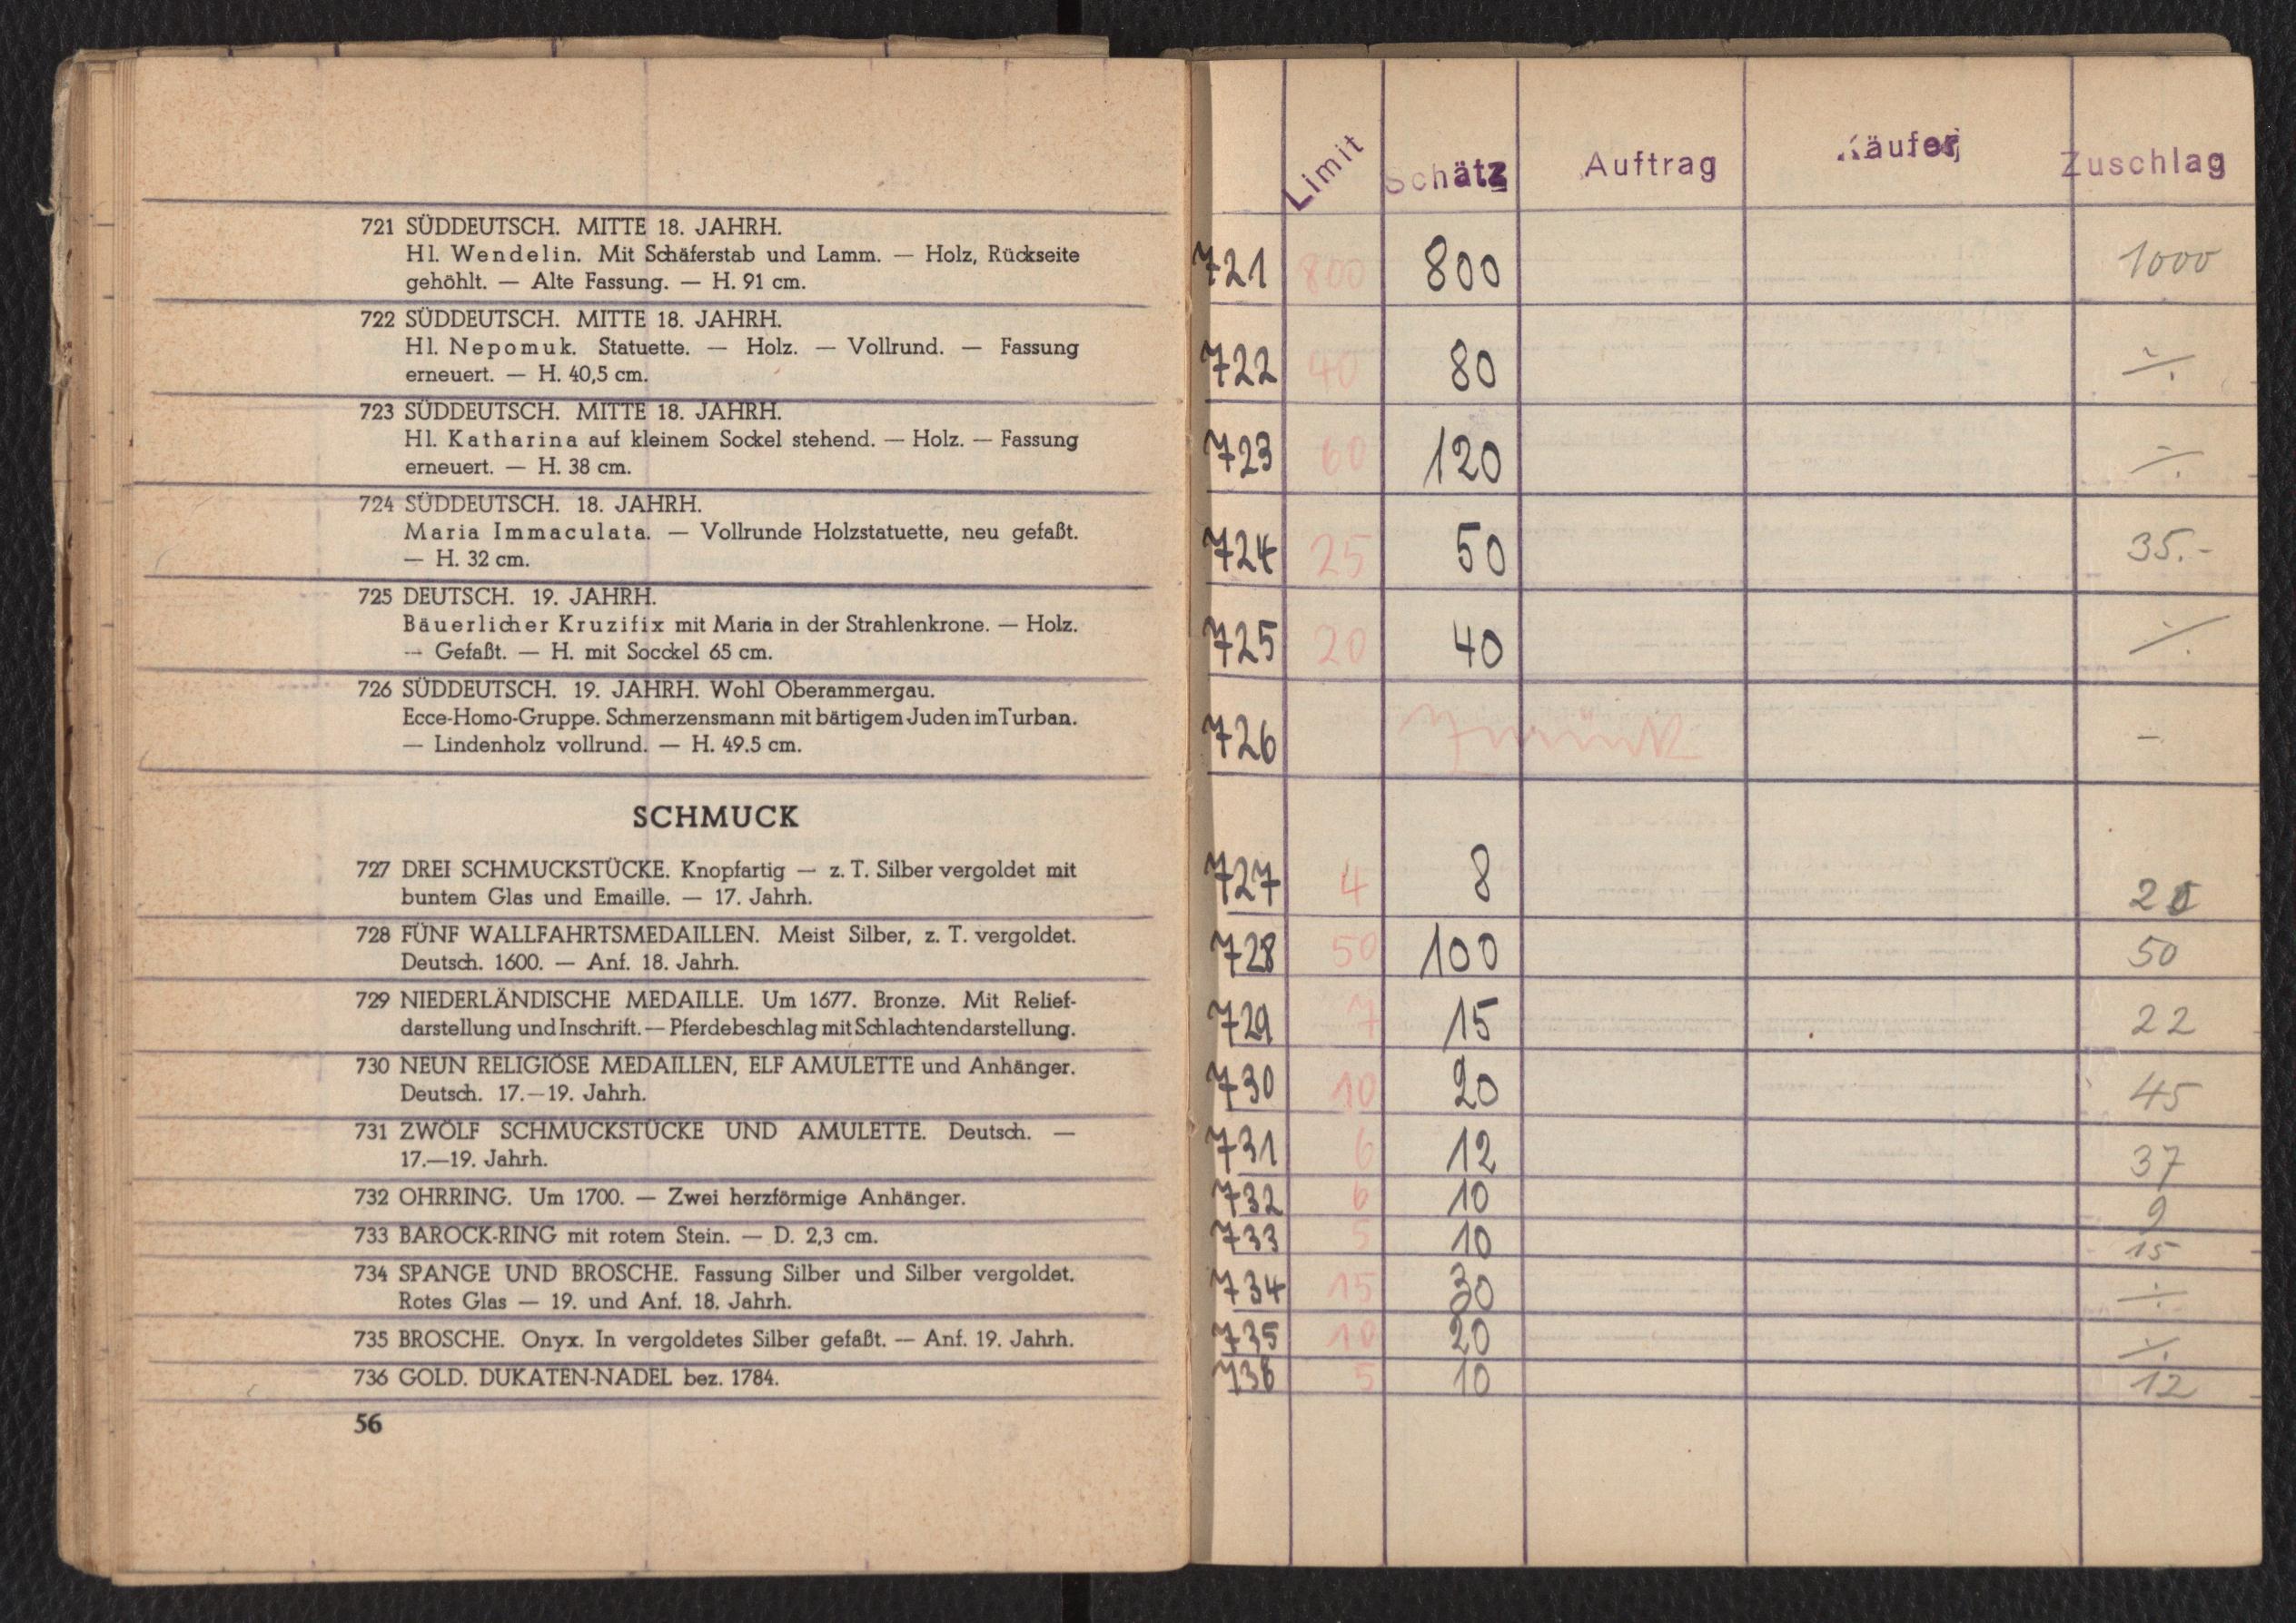 721 SÜDDEUTSCH. MITTE 18. JAHRH.
Hl. Wendelin. Mit Schäferstab und Lamm. — Holz, Rückseite
gehöhlt. — Alte Fassung. — H. 91 cm.
722 SÜDDEUTSCH. MITTE 18. JAHRH.
Hl. Nepomuk. Statuette. — Holz. — Vollrund. — Fassung
erneuert. — H. 40,5 cm.
723 SÜDDEUTSCH. MITTE 18. JAHRH.
Hl. Katharina auf kleinem Sockel stehend. — Holz. — Fassung
erneuert. — H. 38 cm.
724 SÜDDEUTSCH. 18. JAHRH.
Maria Immaculata. — Vollrunde Holzstatuette, neu gefaßt.
— H. 32 cm.
725 DEUTSCH. 19. JAHRH.
Bäuerlicher Kruzifix mit Maria in der Strahlenkrone. — Holz.
— Gefaßt. — H. mit Socckel 65 cm.
726 SÜDDEUTSCH. 19. JAHRH. Wohl Oberammergau.
Ecce-Homo-Gruppe. Schmerzensmann mit bärtigem Juden im Turban.
— Lindenholz vollrund. — H. 49.5 cm.
SCHMUCK
727 DREI SCHMUCKSTÜCKE. Knopfartig — z. T. Silber vergoldet mit
buntem Glas und Emaille. — 17. Jahrh.
728 FÜNF WALLFAHRTSMEDAILLEN. Meist Silber, z. T. vergoldet.
Deutsch. 1600. — Anf. 18. Jahrh.
729 NIEDERLÄNDISCHE MEDAILLE. Um 1677. Bronze. Mit Relief-
darstellung und Inschrift. — Pferdebeschlag mit Schlachtendarstellung.
730 NEUN RELIGIÖSE MEDAILLEN, ELF AMULETTE und Anhänger.
Deutsch. 17.—19. Jahrh.
731 ZWÖLF SCHMUCKSTÜCKE UND AMULETTE. Deutsch. —
17.—19. Jahrh.
732 OHRRING. Um 1700. — Zwei herzförmige Anhänger.
733 BAROCK-RING mit rotem Stein. — D. 2,3 cm.
734 SPANGE UND BROSCHE. Fassung Silber und Silber vergoldet.
Rotes Glas — 19. und Anf. 18. Jahrh.
735 BROSCHE. Onyx. In vergoldetes Silber gefaßt. — Anf. 19. Jahrh.
736 GOLD. DUKATEN-NADEL bez. 1784.
56
Limit Schätz Auftrag Käufer Zuschlag
721 800 800 1000
722 40 80 ·/.
723 60 120 ·/.
724 25 50 35.-
725 20 40 ·/.
726 Zurück —
727 4 8
728 50 100 50
729 7 15 22
730 10 20 45
731 6 12 37
732 6 10 9
733 5 10 15
734 15 30 ·/.
735 10 20 ·/.
736 5 10 12